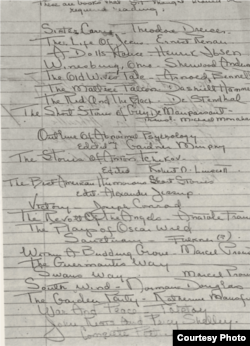 These are books that
required reading
Sister Carrie Theodore Dreiser
The Life of Jesus Ernest Renan
A Dolls House Henrik Ibsen
Winesburg, Ohio Sherwood Anderson
The Old Wives Tale Arnold Bennett
The Maltese Falcon Dashiell Hamme
The Red And The Black De Stendhal
The Short Stories of Guy De Maupassant
Outline Of Abnormal Psychology
edited Gardner Murphy
The Stories of Anton Tchekov
Edited Robert N. Linscott
The Best American Humorous Short Stories
edit Alexander Jessup
Victory Joseph Conrad
The Revolt Of The Angels Anatole Fran
The Plays of Oscar Wild
Sanctuary
Within A Budding Grove Marcel
The Guermantes Way
Swans Way Marcel Prou
South Wind Norman Douglas
The Garden Party Katherine Mans
War And Peace Tolstoy
John Keats And Percy Shelley
Complete
Courtesy Photo